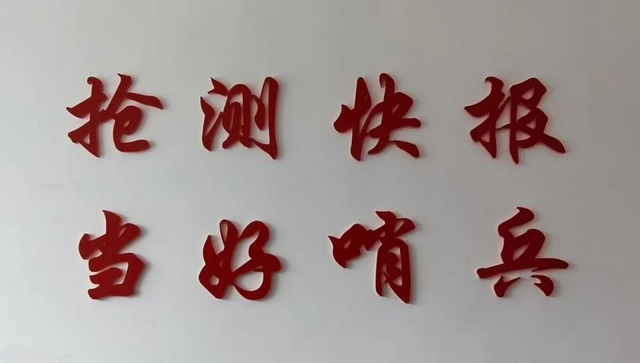 抢测快报
当好哨兵